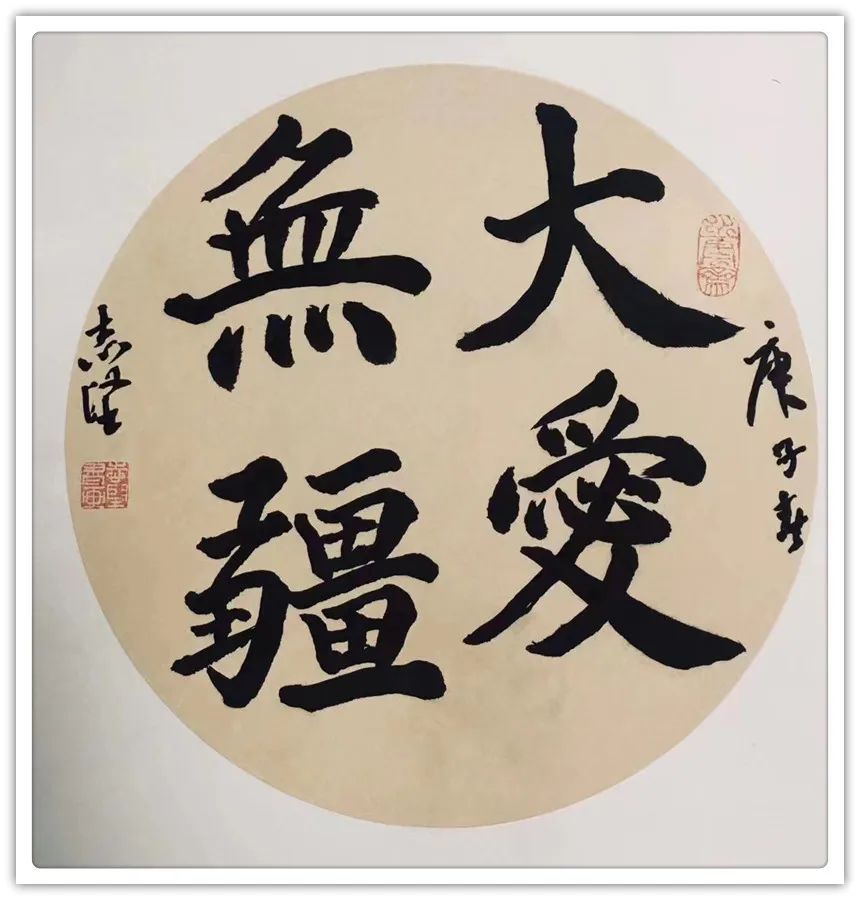 庚子春
大愛
無疆
志堅